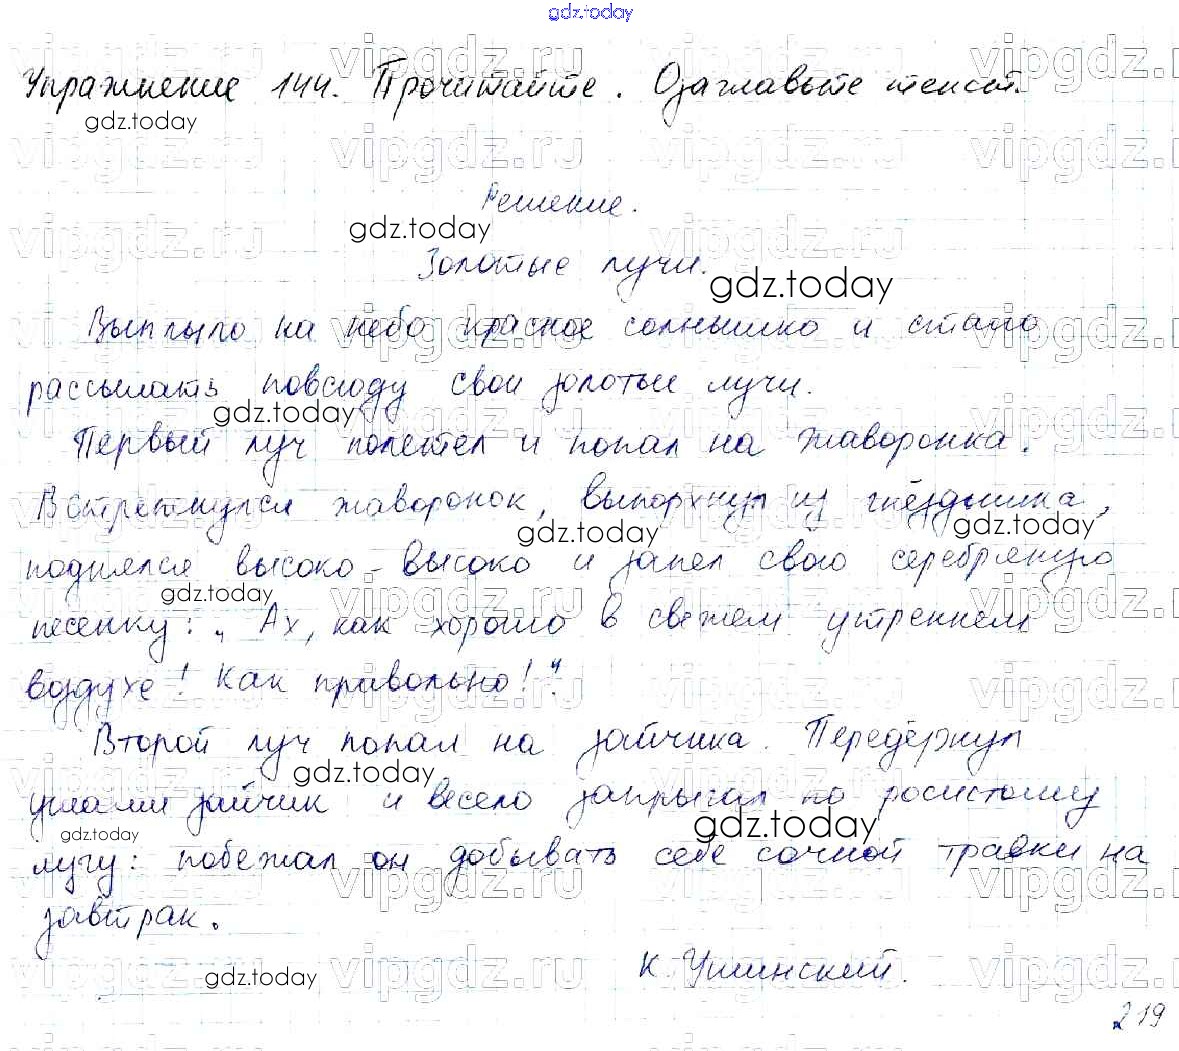 gdz.today
Упражнение 144. Прочитайте. Озаглавьте текст.
Решение.
Золотые лучи.
Выплыло на небо красное солнышко и стало
рассылать повсюду свои золотые лучи.
Первый луч полетел и попал на жаворонка.
Встрепенулся жаворонок, выпорхнул из гнёздышка,
поднялся высоко-высоко и запел свою серебряную
песенку: „Ах, как хорошо в свежем утреннем
воздухе! Как привольно!“.
Второй луч попал на зайчика. Передёрнул
ушами зайчик и весело запрыгал по росистому
лугу: побежал он добывать себе сочной травки на
завтрак.
К. Ушинский.
219